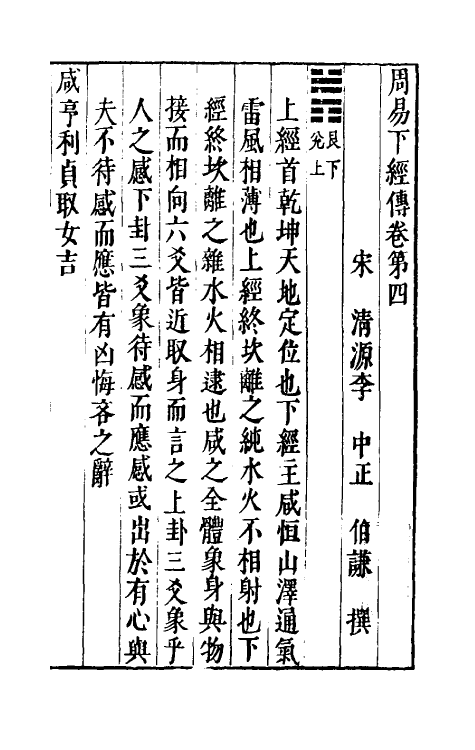 周易下經傳卷第四
宋　清源李　中正　伯謙　撰
艮下
兊上
上經首乾坤天地定位也下經主咸恒山澤通氣
雷風相薄也上經終坎離之純水火不相射也下
經終坎離之雜水火相逮也咸之全體象身與物
接而相向六爻皆近取身而言之上卦三爻象乎
人之感下卦三爻象待感而應感或出於有心與
夫不待感而應皆有凶悔吝之辭
咸亨利貞取女吉